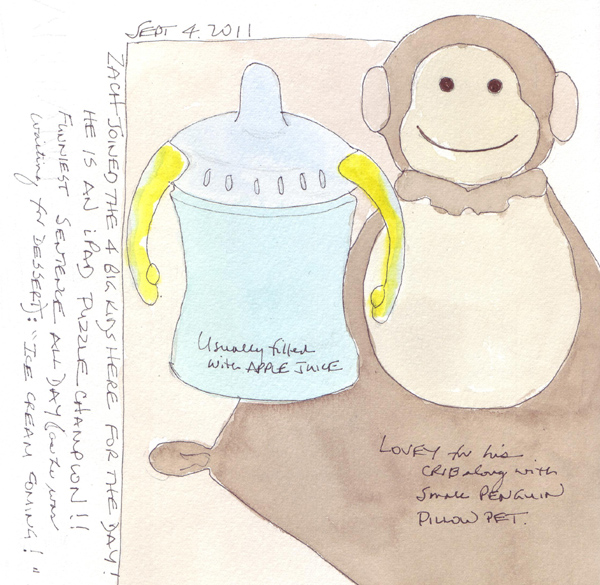 SEPT 4. 2011
ZACH JOINED THE 4 BIG KIDS HERE FOR THE DAY!
HE IS AN iPAD PUZZLE CHAMPION!!
FUNNIEST SENTENCE ALL DAY (as he was
waiting for DESSERT): "ICE CREAM COMING!"
Usually filled
with APPLE JUICE
LOVEY for his
CRIB along with
Small PENGUIN
PILLOW PET.